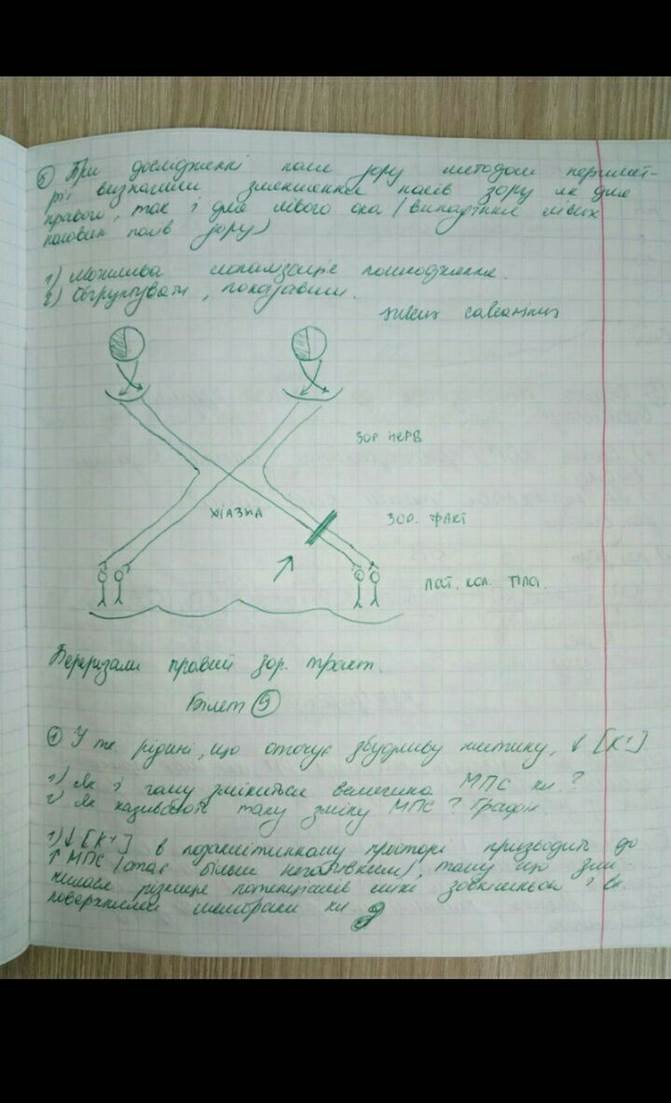 ⑤ При дослідженні поля зору методом перимет-
рії визначили зменшення полів зору як для
правого, так і для лівого ока (випадіння лівих
половин полів зору)
1) Можлива локалізація пошкодження.
2) Обгрунтувати,
ЗОР НЕРВ
ХІАЗМА
ЗОР. ТРАКТ
ЛАТ. КОЛ. ТІЛА.
Перерізали правий зор. тракт.
Білет ⑨
① У тк. рідині, що оточує збудливу клітину, ↓ [K⁺].
1) Як і чому зміниться величина МПС кл.?
2) Як називають таку зміну МПС? Графік.
1) ↓ [K⁺] в позаклітинному просторі призводить до
↑ МПС (стає більш негативним), тому що
різниця потенціалів між зовнішньою і вн.
поверхнями мембрани кл.